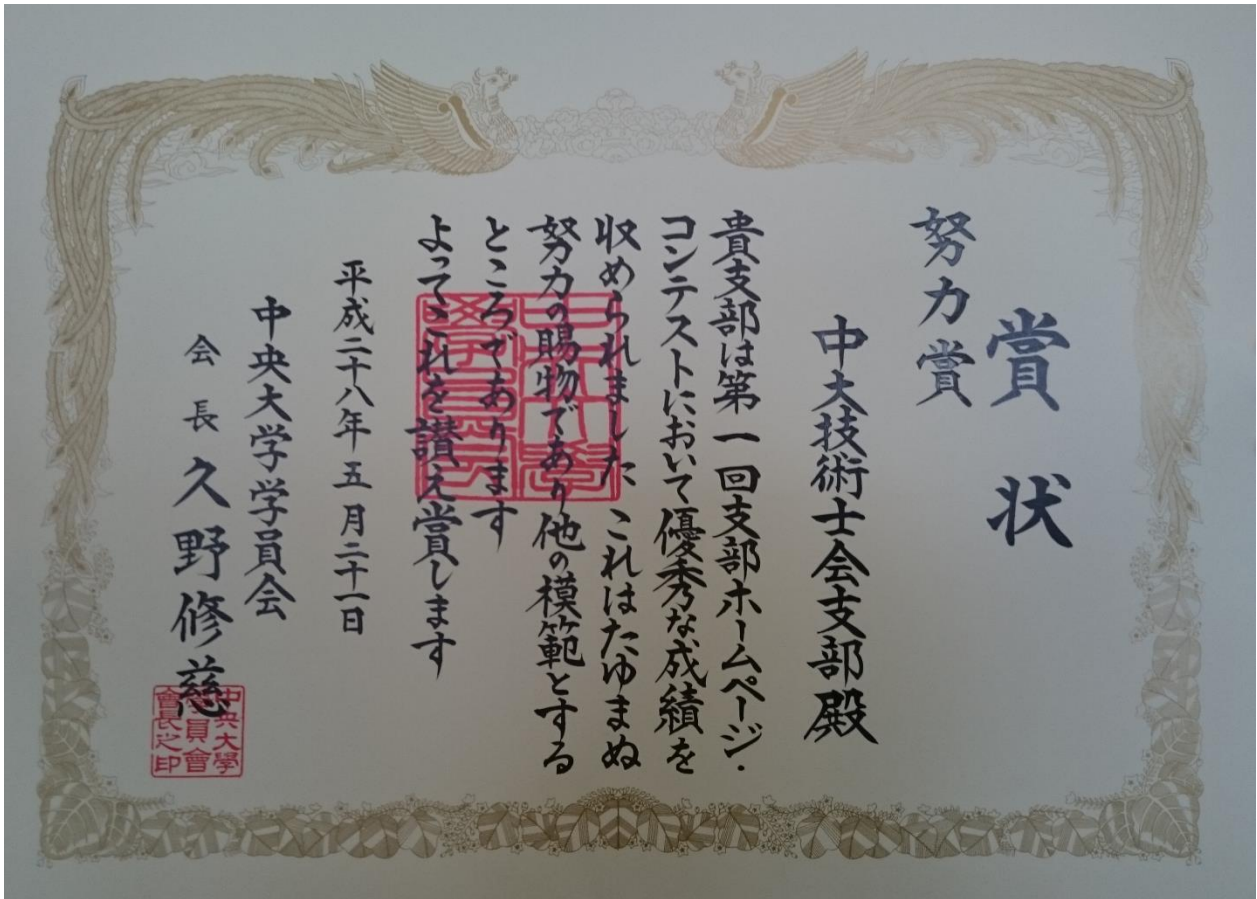 賞状
努力賞
中大技術士会支部殿
貴支部は第一回支部ホームページ・
コンテストにおいて優秀な成績を
収められました これはたゆまぬ
努力の賜物であり他の模範とする
ところであります
よってこれを讃え賞します
平成二十八年五月二十一日
中央大学学員会
会長 久野修慈
中央大學
員會
會長之印